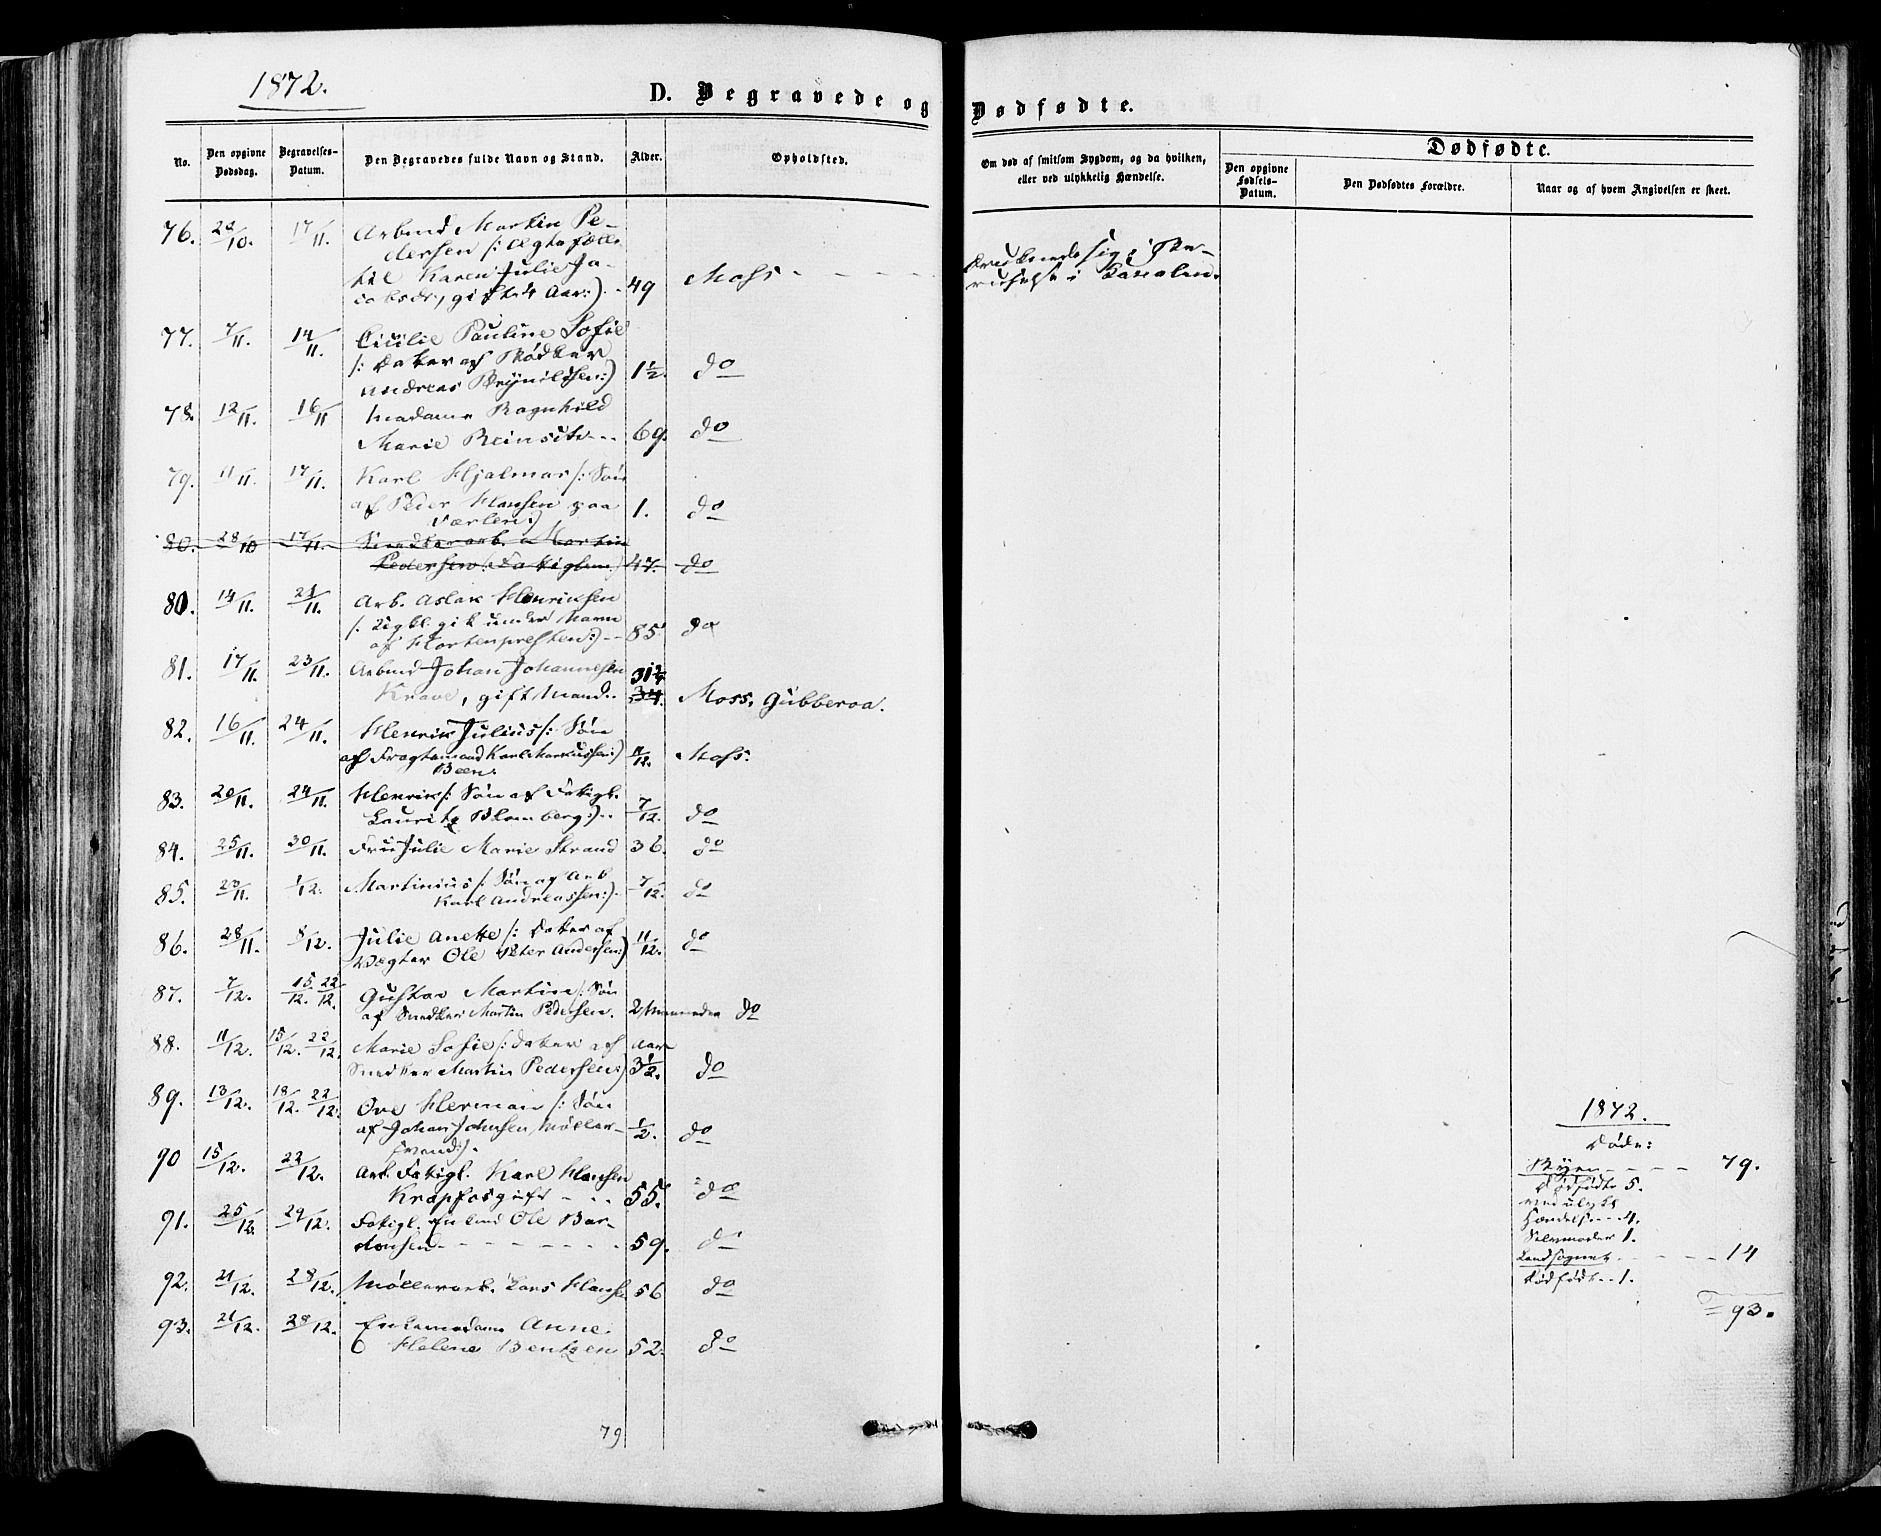 1872.
D. Begravede og Dødfødte.
No.
Den opgivne Dødsdag.
Begravelses-Datum.
Den Begravedes fulde Navn og Stand.
Alder.
Opholdsted.
Om død af smitsom Sygdom, og da hvilken, eller ved ulykkelig Hændelse.
Dødfødte.
Den opgivne Fødsels-Datum.
Den Dødfødtes Forældre.
Naar og af hvem Angivelsen er skeet.
76. 28/10. 17/11. Arbmd Martin Pe-
dersen /: Ægtefælle
til Karen Julie Ja-
cobsdr, gift 4 Aar:) 49 Moss
druknede sig i Be-
ruselse i Kanalen.
77. 7/11. 14/11. Cicilie Pauline Sofie
/: Datter af Bødker
Andreas Brynildsen:) 1½. do
78. 12/11. 16/11 Madame Ragnhild
Marie Reinsch 69. do
79. 11/11. 17/11. Karl Hjalmar /: Søn
af Peder Hansen paa
Værlen:) 1. do
80. 28/10 17/11. Snedkerarb. Martin
Pedersen /: Fatiglem:) 47. do
80. 14/11. 21/11. Arb. Aslak Henriksen
/: gik under Navn
af Hortenpresten:) 85 do
81. 17/11. 23/11. Arbmd Johan Johannesen
Krave, gift Mand. 34. Moss. Gubberoa.
82. 16/11. 24/11. Henrik Julius /: Søn
af Fragtemand Karl Markussen:)
Been. 11/12. Moss.
83. 20/11. 24/11. Henrik /: Søn af Fatigl.
Lauritz Blomberg:) 7/12. do
84. 25/11. 30/11. Fru Julie Marie Strand 36. do
85. 23/11. 1/12. Martinius /: Søn af Arb
Karl Andreassen:) 7/12. do
86. 28/11. 8/12. Julie Anette /: Datter af
Vægter Ole Peter Andersen:) 11/12. do
87. 7/12. 15/12. 22/12. Gustav Martin /: Søn
af Snedker Martin Pedersen. 2 Maaneder do
88. 11/12. 15/12. 22/12. Marie Sofie /: Datter af Aar
Snedker Martin Pedersen:) 3½. do
89. 13/12. 18/12. 22/12. Ove Herman /: Søn
af Johan Johnsen, Møller-
svend:). ½. do
90 15/12. 22/12. Arb. Fatigl. Karl Hansen
Krapfos gift 55. do
91. 25/12. 29/12. Fatigl. Ole Bar-
donsen 59. do
92. 21/12. 28/12. Møllerarb. Lars Hansen 56 do
93. 21/12. 28/12. Enkemadame Anne
Helene Bentzen 52. do
79
1872.
Døde:
Byen 79.
Dødfødte 5.
ved ulykk
Hændelse 4.
Selvmorder 1.
Landsognet 14
Dødfødt 1.
93.